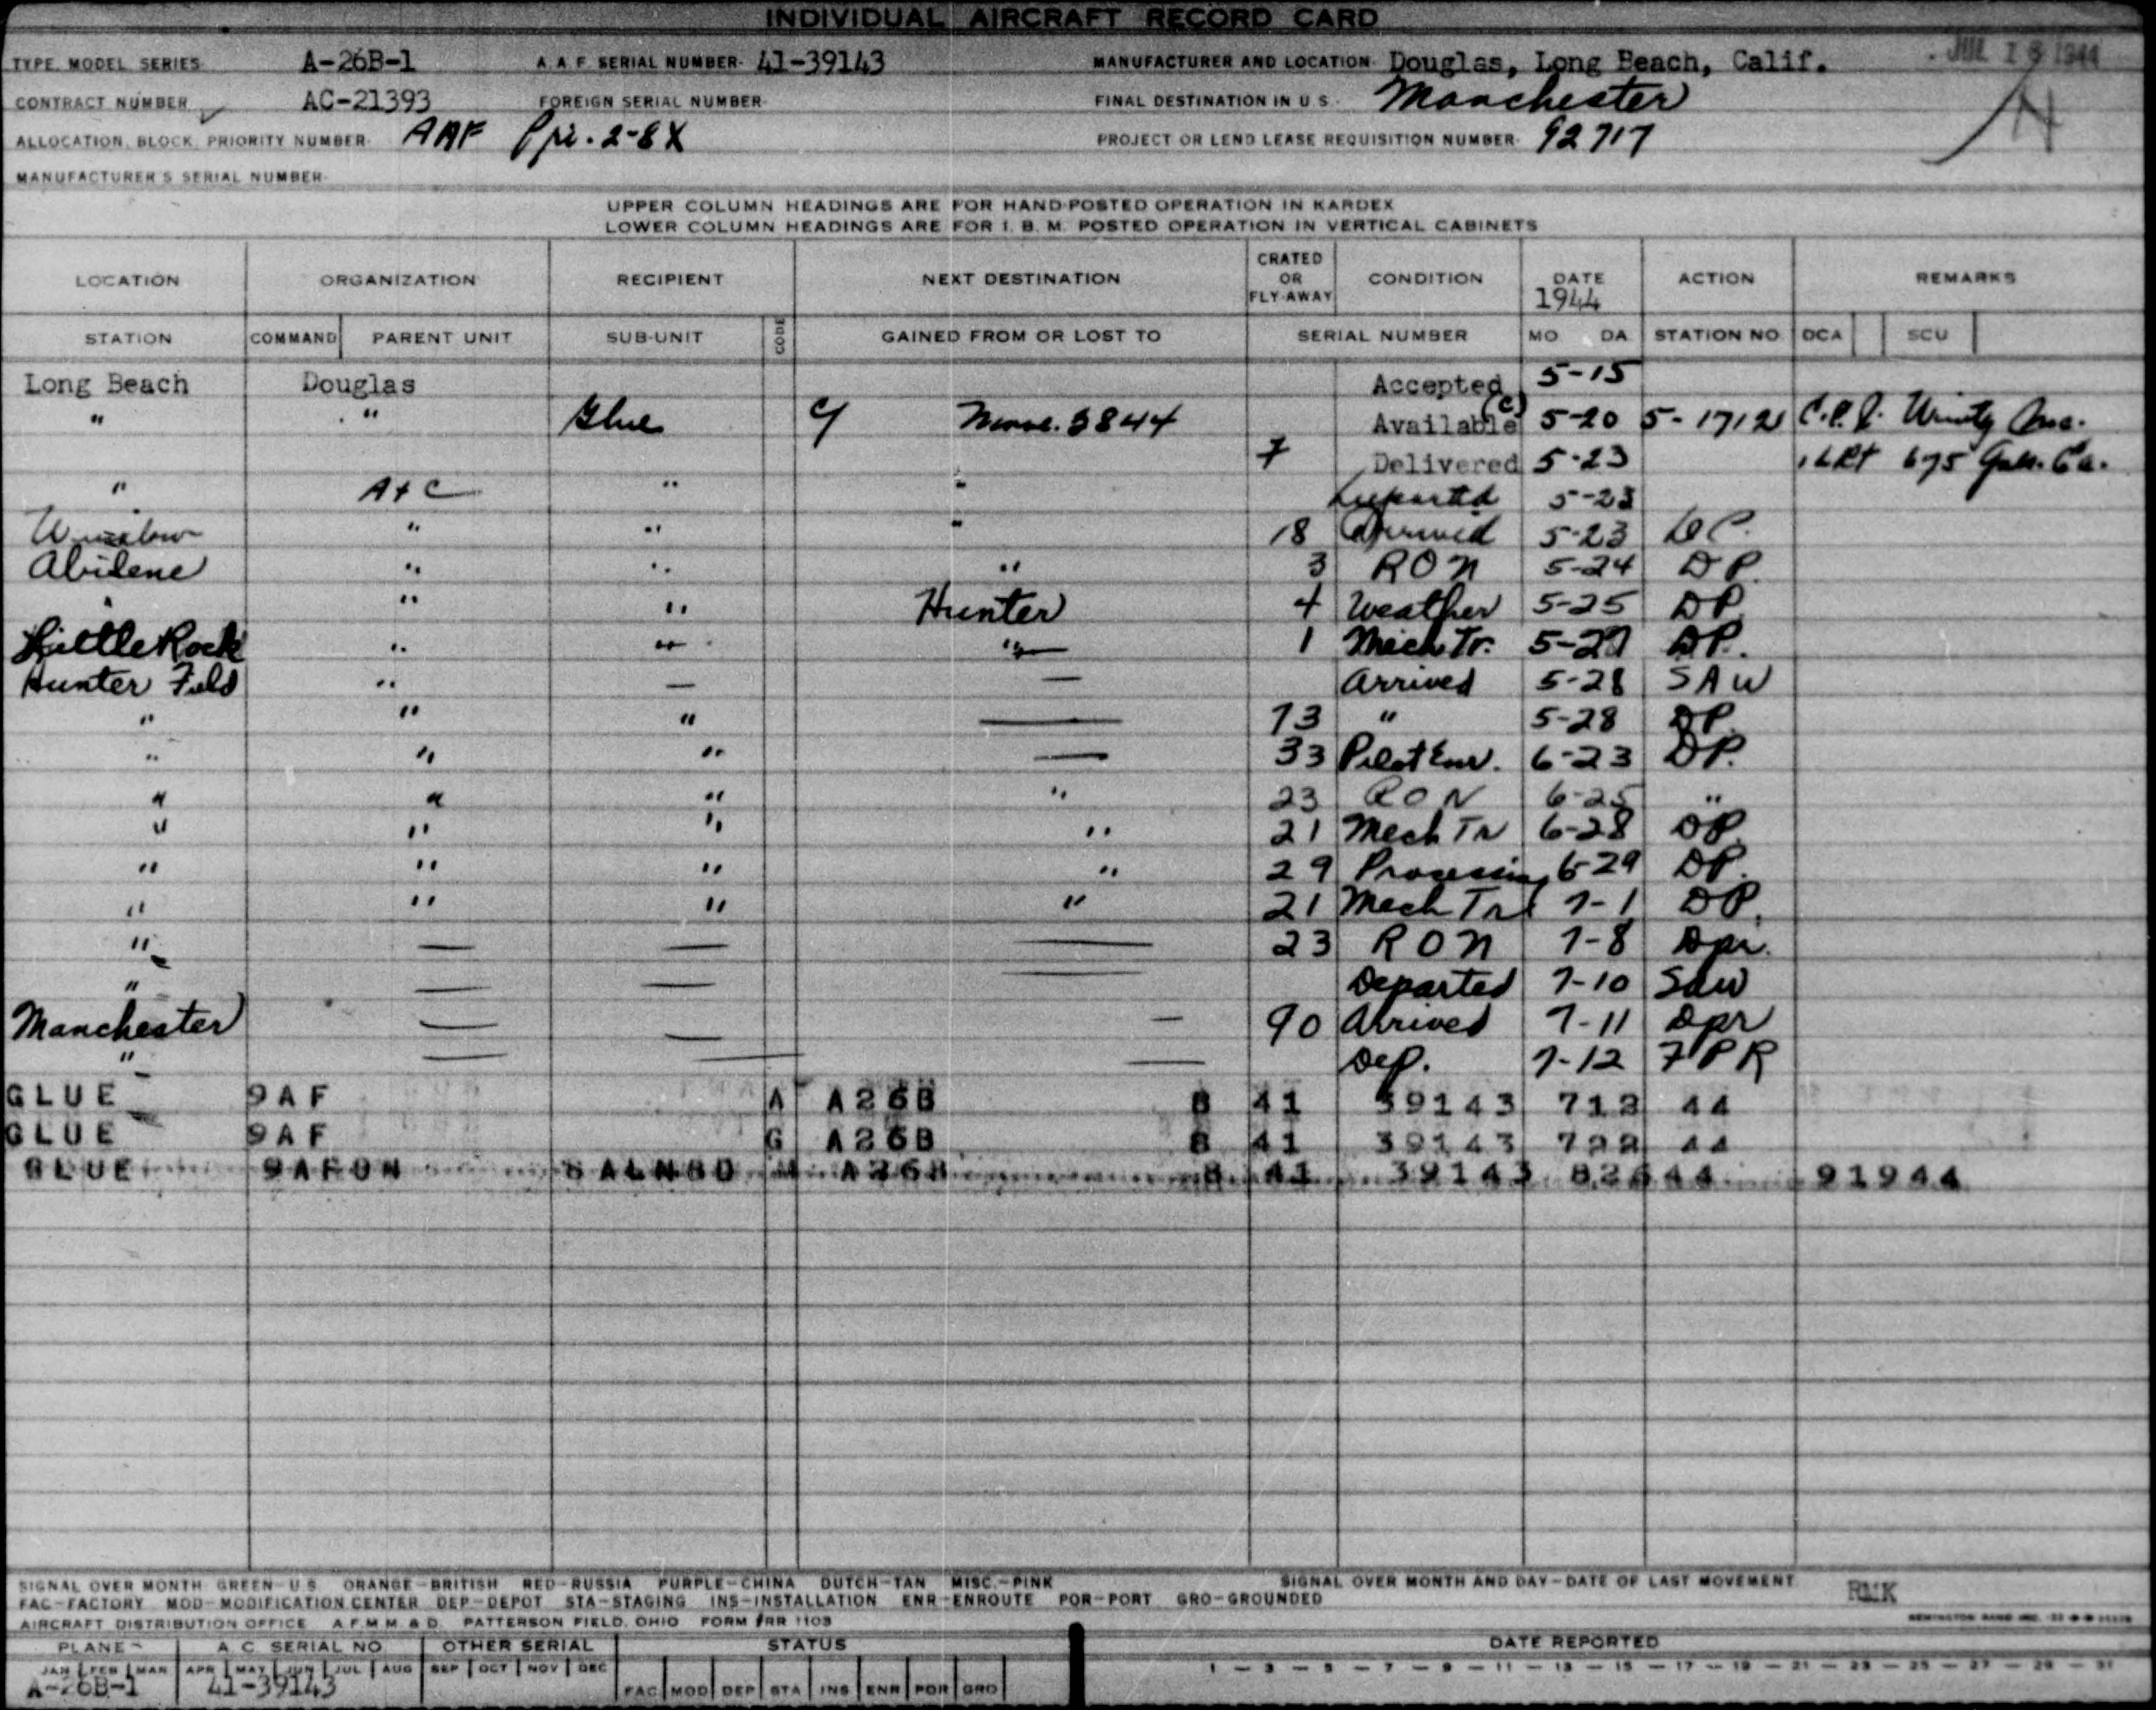 INDIVIDUAL AIRCRAFT RECORD CARD
TYPE, MODEL, SERIES A-26B-1 A. A. F. SERIAL NUMBER- 41-39143 MANUFACTURER AND LOCATION- Douglas, Long Beach, Calif. JUL 1944
CONTRACT NUMBER AC-21393 FOREIGN SERIAL NUMBER- FINAL DESTINATION IN U S - Manchester
ALLOCATION, BLOCK, PRIORITY NUMBER- AAF Pri. 2-8X PROJECT OR LEND LEASE REQUISITION NUMBER- 92717 N
MANUFACTURER'S SERIAL NUMBER-
UPPER COLUMN HEADINGS ARE FOR HAND-POSTED OPERATION IN KARDEX
LOWER COLUMN HEADINGS ARE FOR I. B. M. POSTED OPERATION IN VERTICAL CABINETS
LOCATION ORGANIZATION RECIPIENT NEXT DESTINATION CRATED OR FLY-AWAY CONDITION DATE 1944 ACTION REMARKS
STATION COMMAND PARENT UNIT SUB-UNIT CODE GAINED FROM OR LOST TO SERIAL NUMBER MO DA STATION NO DCA SCU
Long Beach Douglas Accepted 5-15
" " Glue 3844 Available (C) 5-20 5-
7 Delivered 5-23 675
" " " Departed 5-23
Winslow " " " 18 Arrived 5-23
Abilene " " " 3 RON 5-24 DP.
" " " Hunter 4 Weather 5-25 DP
Little Rock " " " 1 Mech Tr. 5-27 DP.
Hunter Field " — — Arrived 5-28 SAW
" " " — 73 " 5-28 DP.
" " " — 33 6-23 DP.
" " " " 23 RON 6-25 "
" " " " 21 Mech Tr 6-28 DP.
" " " " 29 Processing 6-29 DP.
" " " " 21 Mech Tr 7-1 DP.
" — — — 23 RON 7-8 Dpr.
" — — — Departed 7-10 Saw
Manchester — — — 90 Arrived 7-11 Dpr
" — — — Dep. 7-12 FPR
GLUE 9AF A A26B B 41 39143 712 44
GLUE 9AF G A26B B 41 39143 722 44
GLUE A26B B 41 39143 44 91944
SIGNAL OVER MONTH GREEN-U S ORANGE-BRITISH RED-RUSSIA PURPLE-CHINA DUTCH-TAN MISC.-PINK SIGNAL OVER MONTH AND DAY-DATE OF LAST MOVEMENT
FAC-FACTORY MOD-MODIFICATION CENTER DEP-DEPOT STA-STAGING INS-INSTALLATION ENR-ENROUTE POR-PORT GRO-GROUNDED RMK
AIRCRAFT DISTRIBUTION OFFICE A.F.M.M. & D. PATTERSON FIELD, OHIO FORM #RR 1103 REMINGTON RAND INC.
PLANE A. C. SERIAL NO. OTHER SERIAL STATUS DATE REPORTED
JAN FEB MAR APR MAY JUN JUL AUG SEP OCT NOV DEC 1 - 3 - 5 - 7 - 9 - 11 - 13 - 15 - 17 - 19 - 21 - 23 - 25 - 27 - 29 - 31
A-26B-1 41-39143 FAC MOD DEP STA INS ENR POR GRO